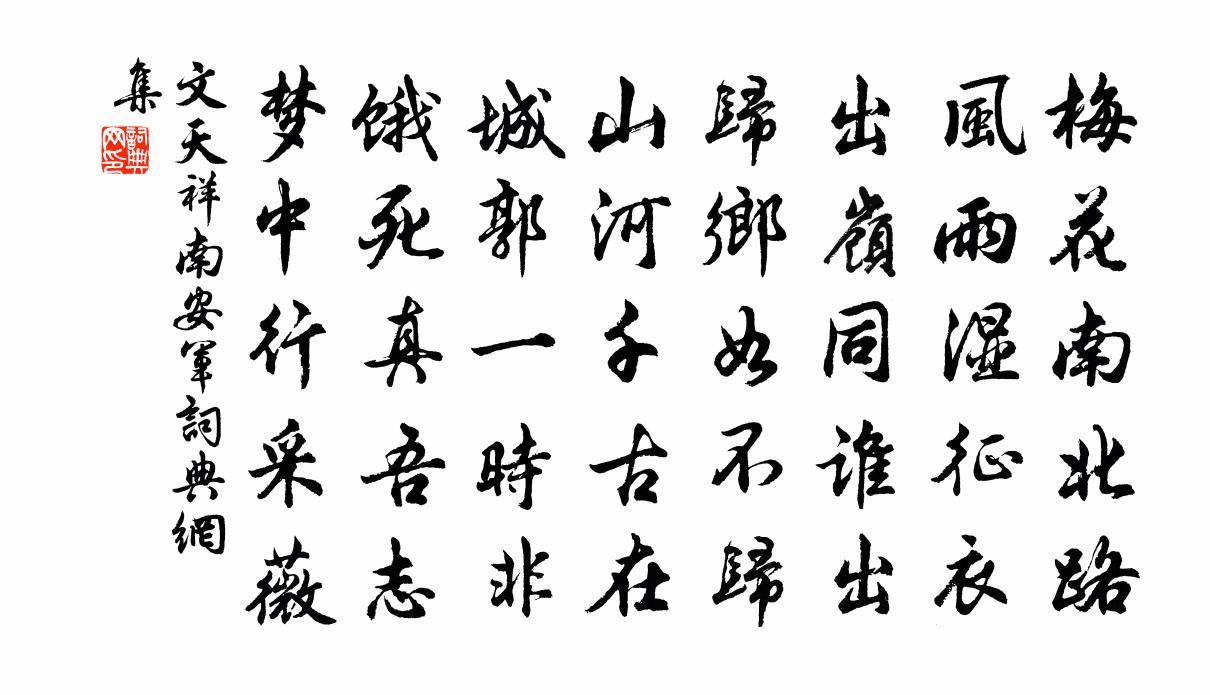 梅花南北路
風雨湿征衣
出嶺同誰出
歸鄉如不歸
山河千古在
城郭一時非
饿死真吾志
梦中行采薇
文天祥南安軍詞典網
集
詞典
网印